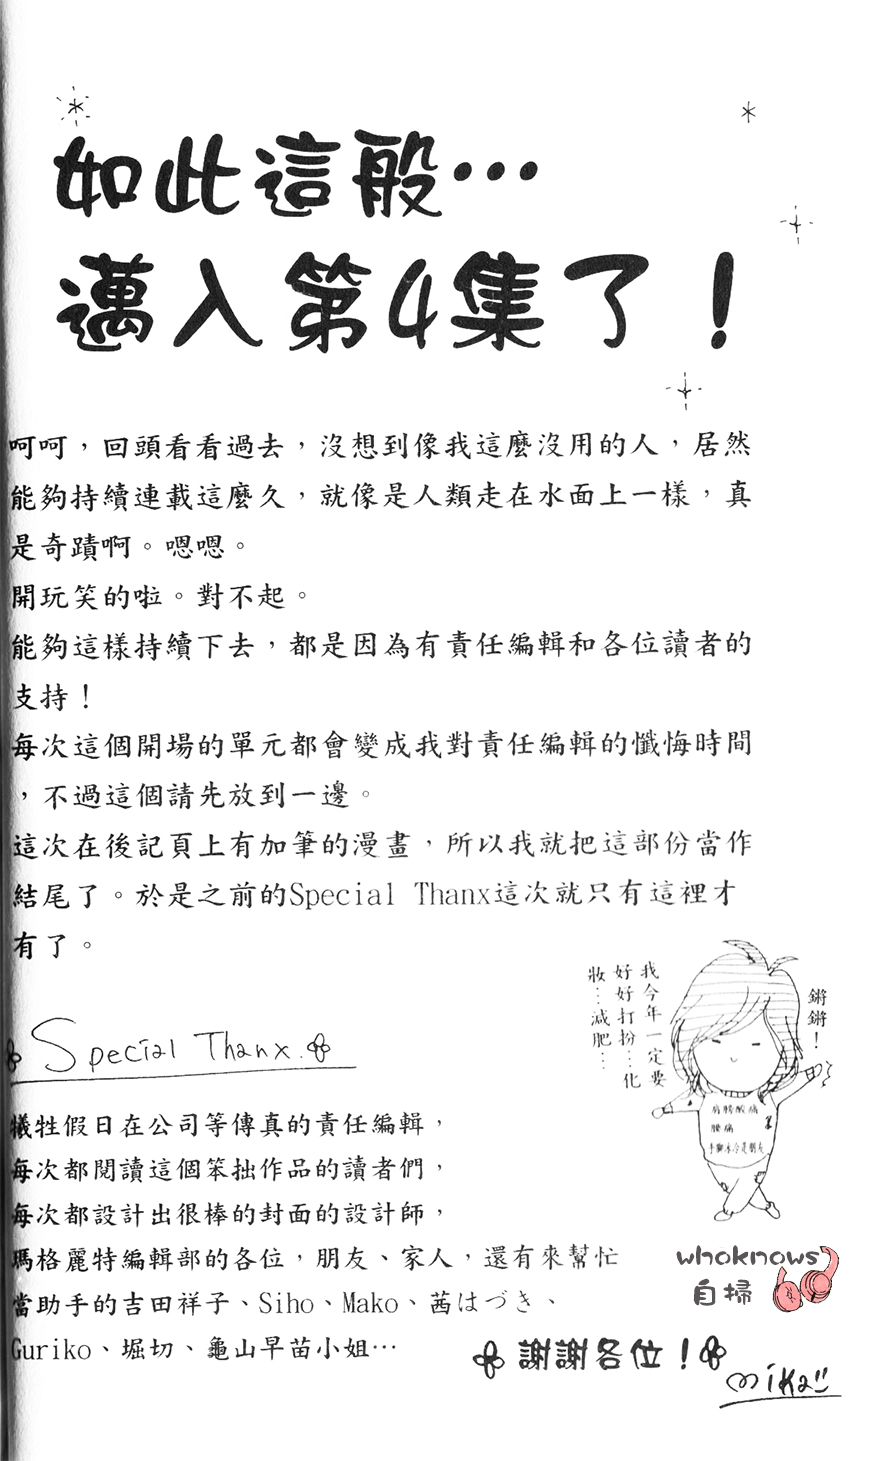 如此這般…
邁入第4集了！
呵呵，回頭看看過去，沒想到像我這麼沒用的人，居然
能夠持續連載這麼久，就像是人類走在水面上一樣，真
是奇蹟啊。嗯嗯。
開玩笑的啦。對不起。
能夠這樣持續下去，都是因為有責任編輯和各位讀者的
支持！
每次這個開場的單元都會變成我對責任編輯的懺悔時間
，不過這個請先放到一邊。
這次在後記頁上有加筆的漫畫，所以我就把這部份當作
結尾了。於是之前的Special Thanx這次就只有這裡才
有了。
我今年一定要
好好打扮…化
妝…減肥…
鏘鏘！
肩膀酸痛
腰痛
手腳冰冷是朋友
Special Thanx.
犧牲假日在公司等傳真的責任編輯，
每次都閱讀這個笨拙作品的讀者們，
每次都設計出很棒的封面的設計師，
瑪格麗特編輯部的各位，朋友、家人，還有來幫忙
當助手的吉田祥子、Siho、Mako、茜はづき、
Guriko、堀切、龜山早苗小姐…
謝謝各位！
mika
whoknows
自掃